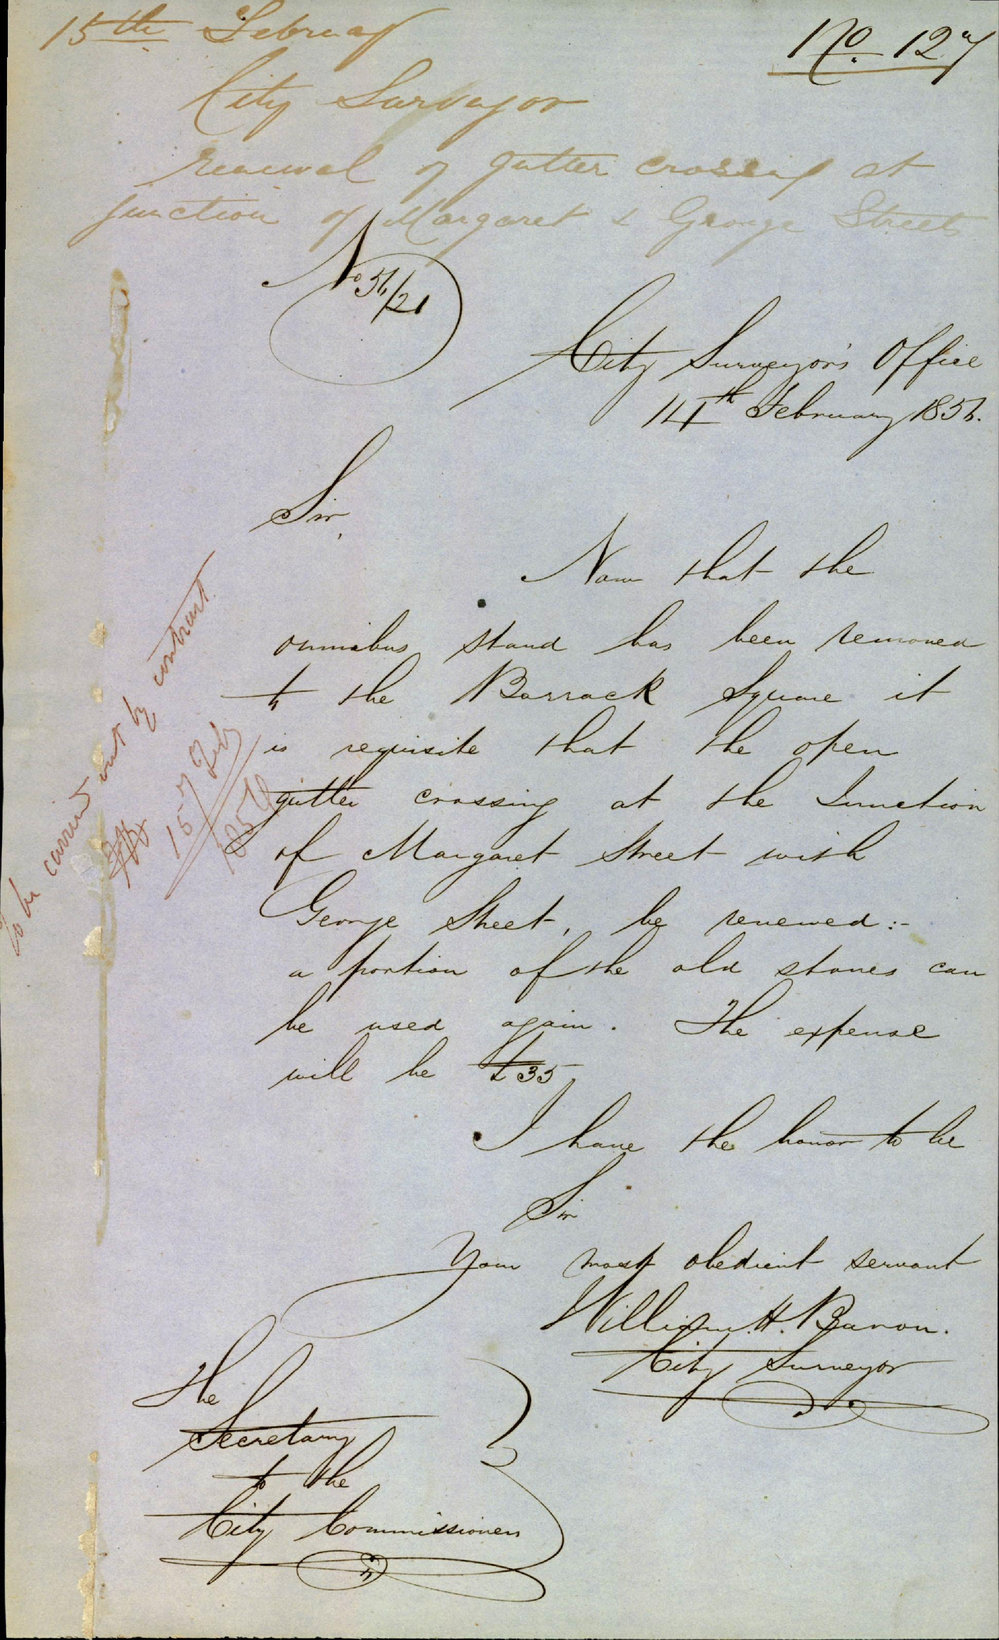 15th February
No. 127
City Surveyor
renewal of gutter crossing at
junction of Margaret & George Streets
No 56/21
City Surveyor's Office
14th February 1856.
Sir,
Now that the
omnibus stand has been removed
to the Barrack Square it
is requisite that the open
gutter crossing at the Junction
of Margaret Street with
George Street, be renewed:-
a portion of the old stones can
be used again. The expense
will be £35
I have the honor to be
Sir
Your most obedient servant
William. H. Baron.
City Surveyor
The
Secretary
to the
City Commissioners
To be carried out by contract
15 Feby
1856